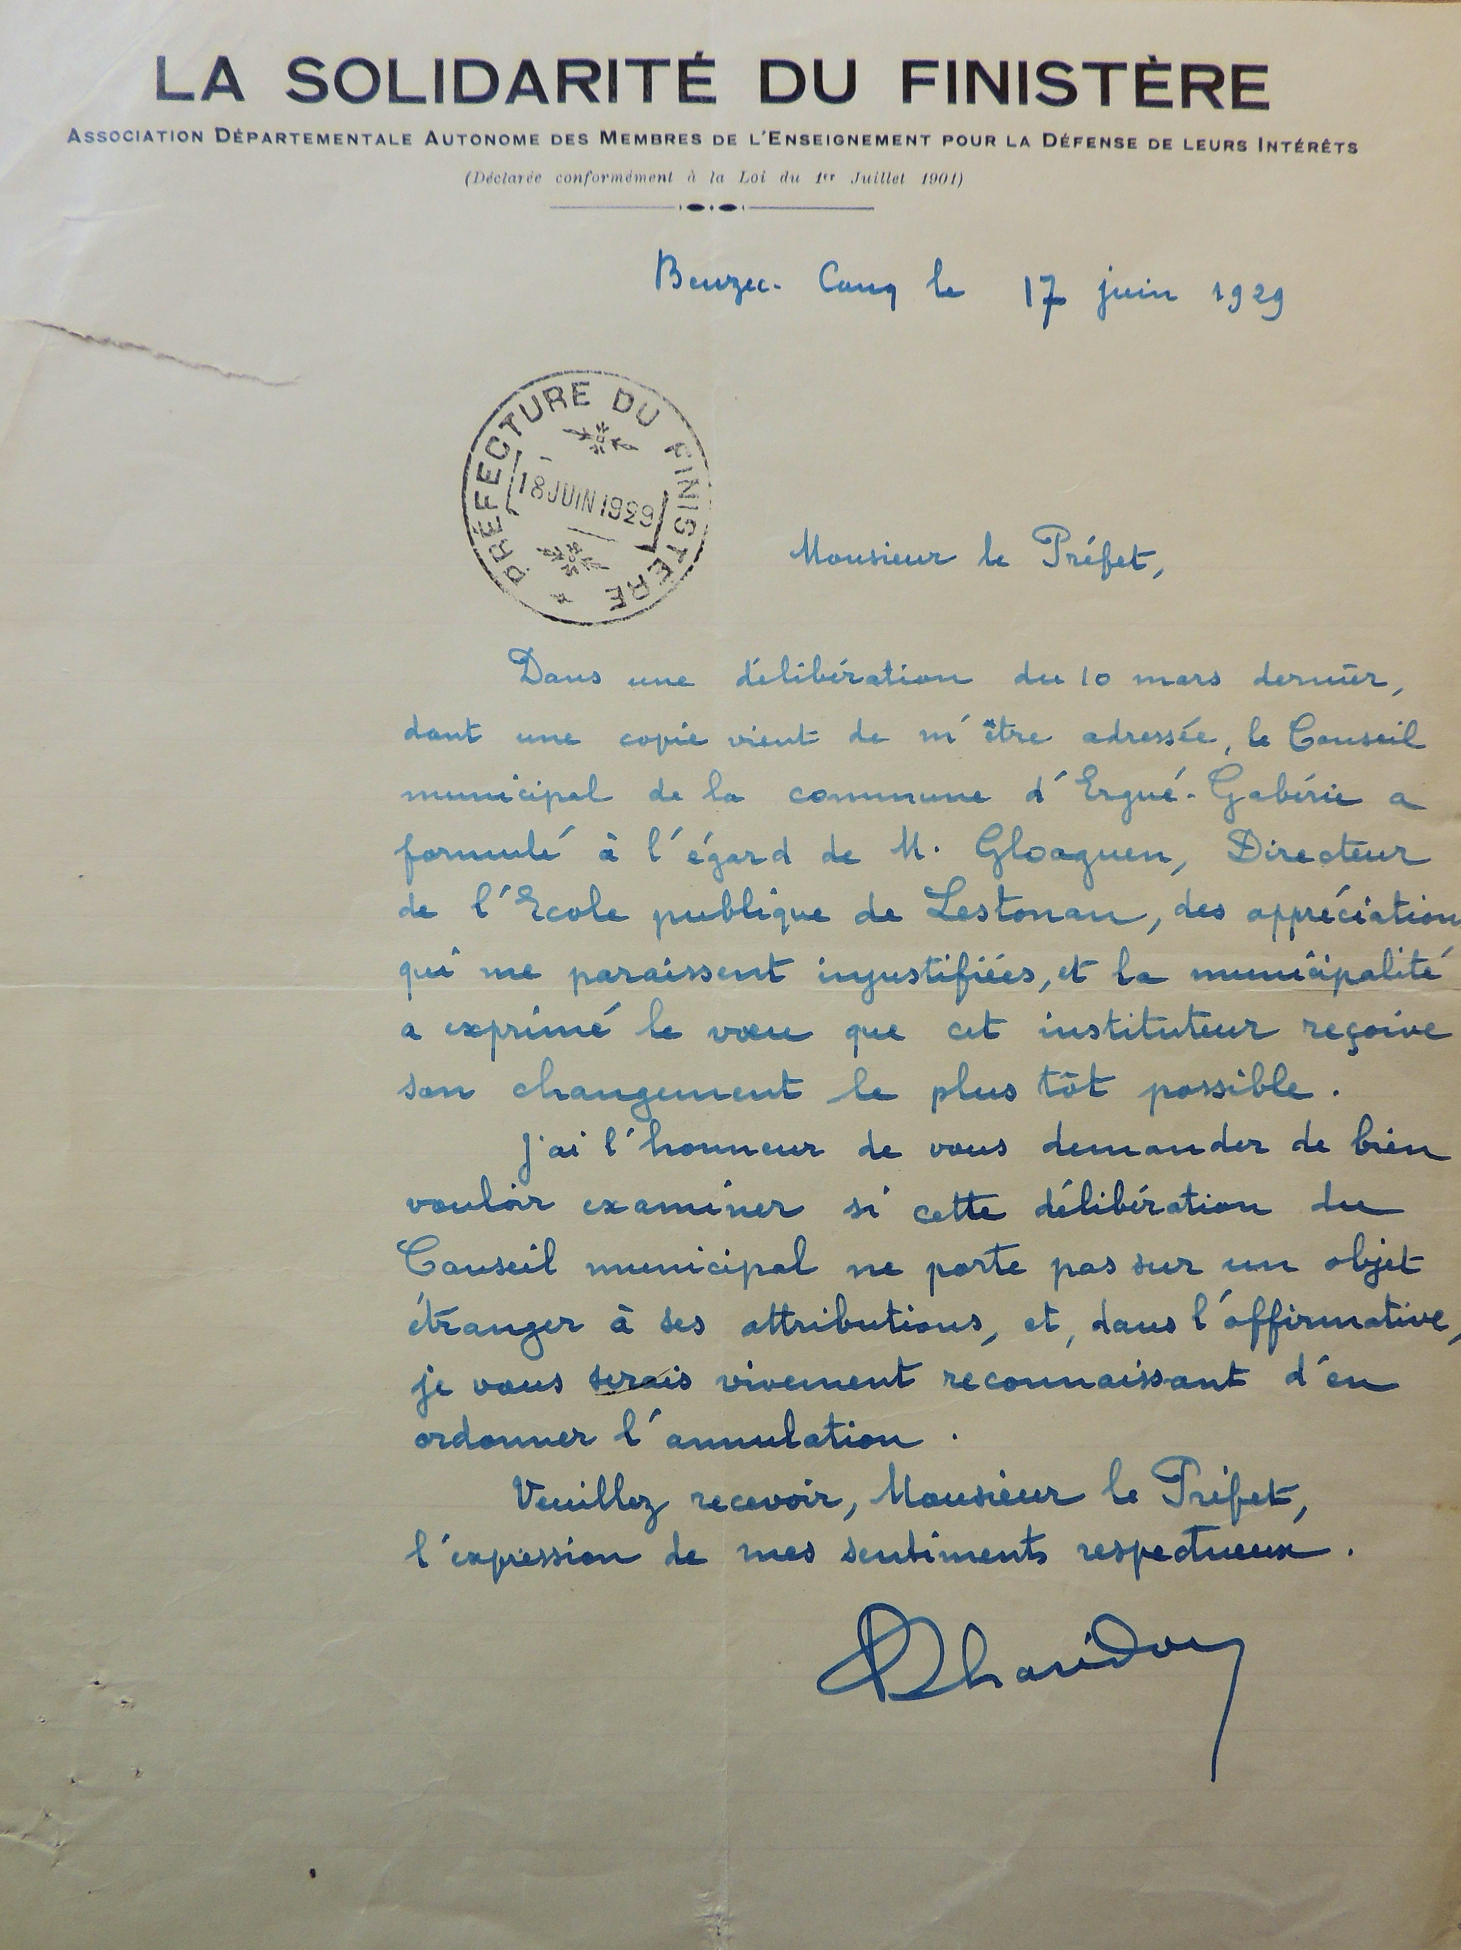 LA SOLIDARITÉ DU FINISTÈRE
ASSOCIATION DÉPARTEMENTALE AUTONOME DES MEMBRES DE L'ENSEIGNEMENT POUR LA DÉFENSE DE LEURS INTÉRÊTS
(Déclarée conformément à la Loi du 1er Juillet 1901)
Beuzec-Conq le 17 juin 1929
PRÉFECTURE DU FINISTÈRE *
18 JUIN 1929
Monsieur le Préfet,
Dans une délibération du 10 mars dernier,
dont une copie vient de m'être adressée, le Conseil
municipal de la commune d'Ergué-Gabéric a
formulé à l'égard de M. Gloaguen, Directeur
de l'Ecole publique de Lestonan, des appréciation
qui me paraissent injustifiées, et la municipalité
a exprimé le vœu que cet instituteur reçoive
son changement le plus tôt possible.
J'ai l'honneur de vous demander de bien
vouloir examiner si cette délibération du
Conseil municipal ne porte pas sur un objet
étranger à ses attributions, et, dans l'affirmative,
je vous serais vivement reconnaissant d'en
ordonner l'annulation.
Veuillez recevoir, Monsieur le Préfet,
l'expression de mes sentiments respectueux.